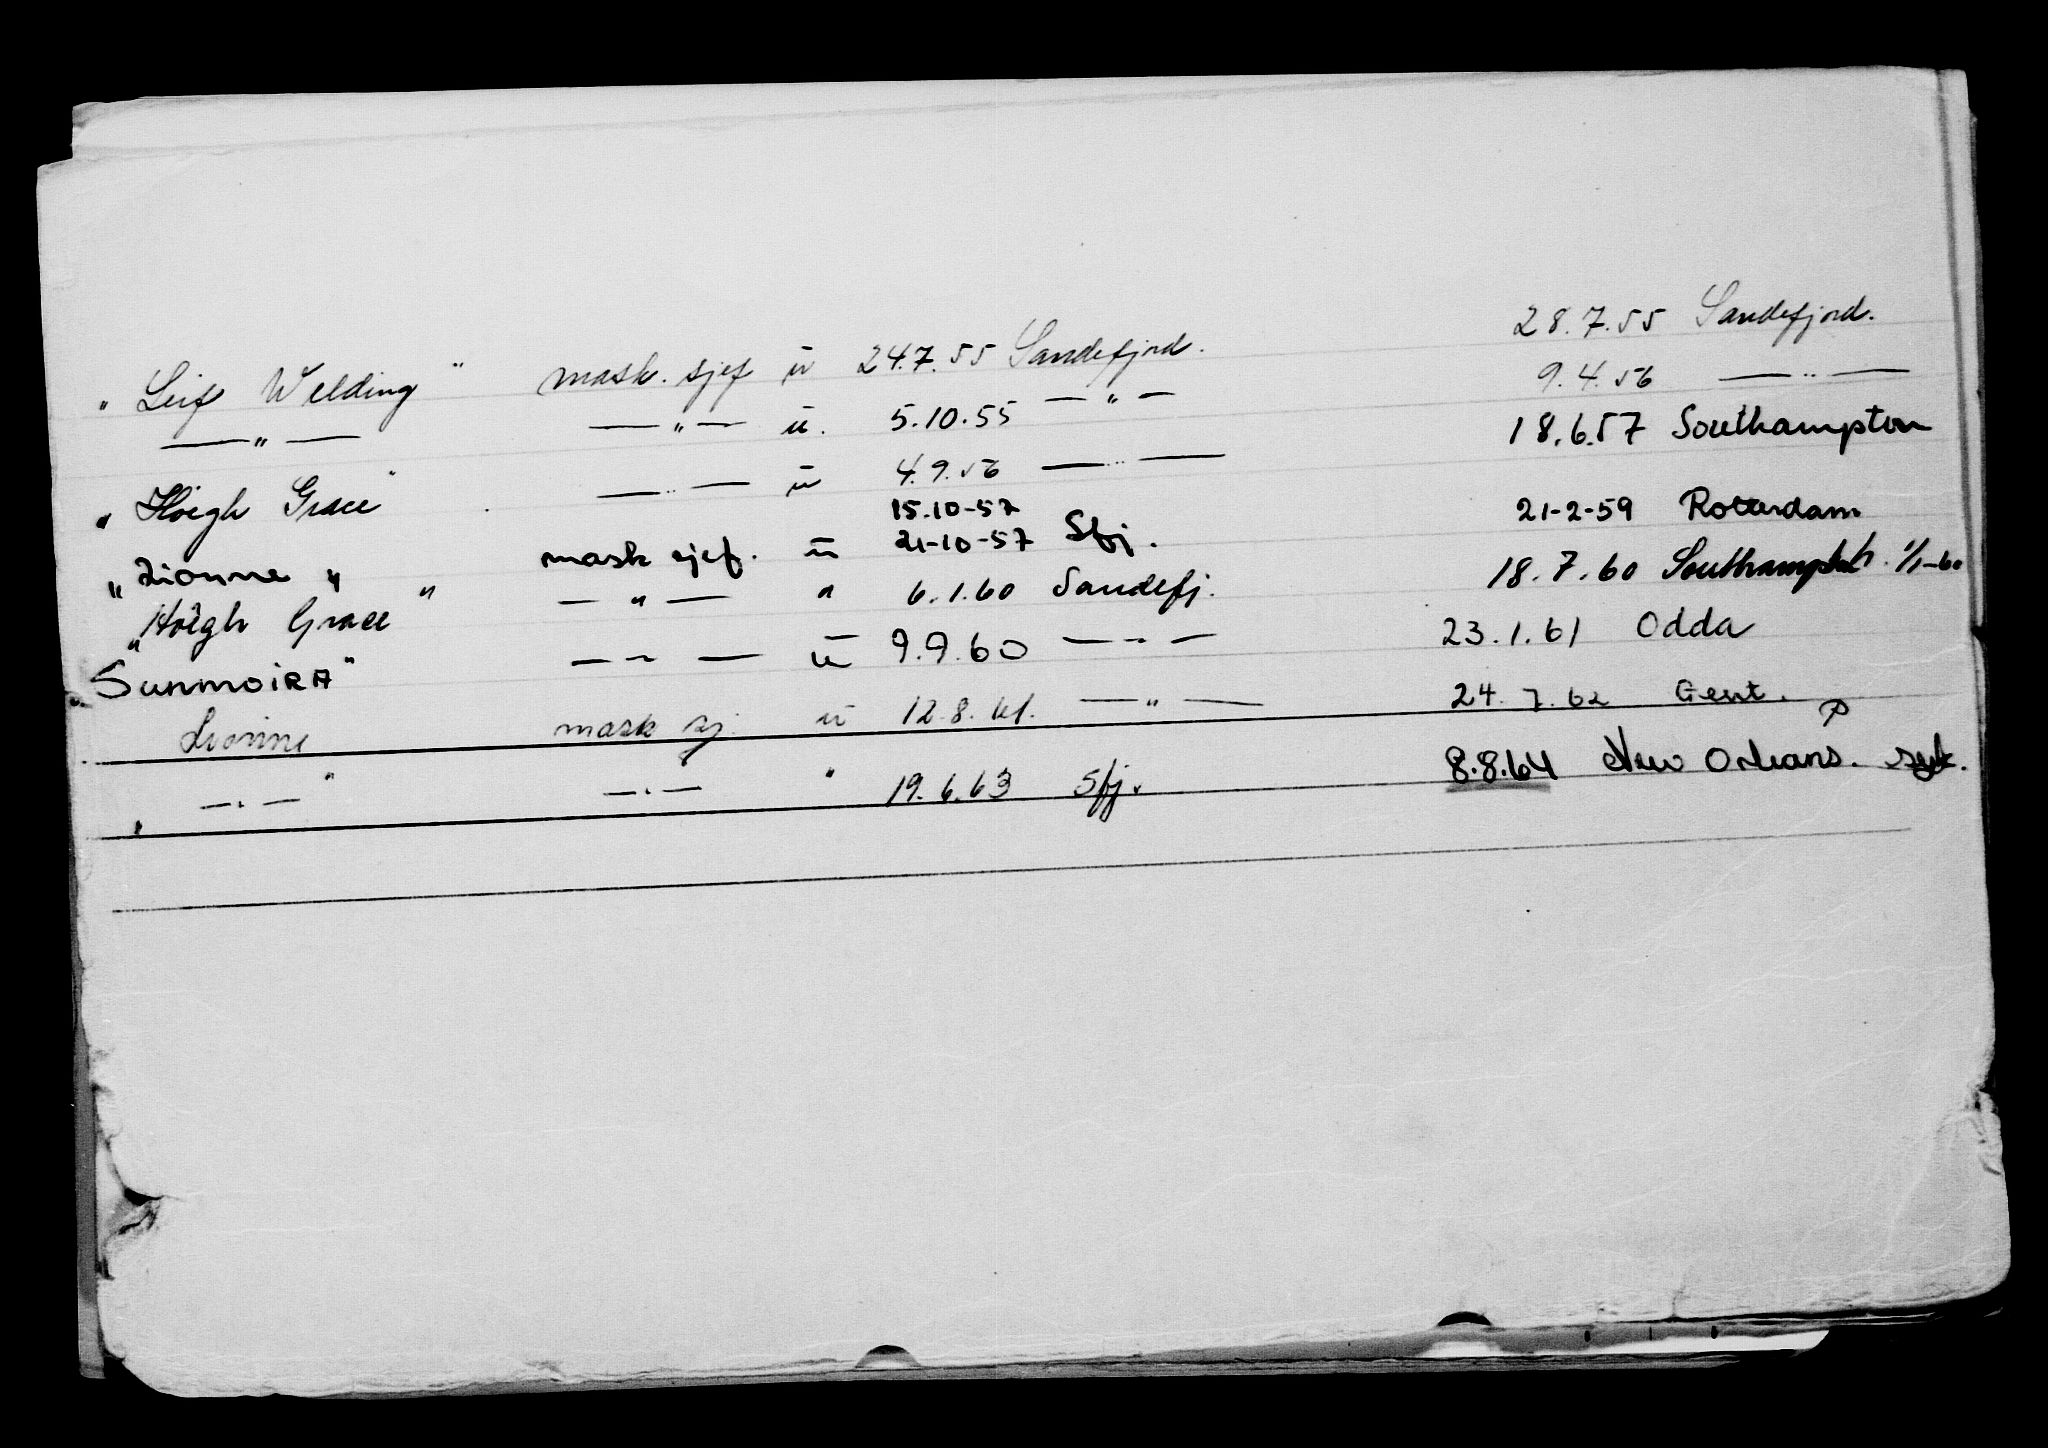 "Leif Welding" mask. sjef u 24.7.55 Sandefjord. 28.7.55 Sandefjord.
— " — — " — u. 5.10.55 — " — 9.4.56 — " —
"Höegh Grace" — " — u 4.9.56 — " — 18.6.57 Southampton
15.10-57
"Lionne" mask sjef. u 21-10-57 Sfj. 21-2-59 Rotterdam
"Höegh Grace" — " — " 6.1.60 Sandefj. 18.7.60 1/1-60
"SunmoirA" — " — u 9.9.60 — " — 23.1.61 Odda
Lionne mask sj. u 12.8.61. — " — 24.7.62 Gent.
" — " — " — " — " 19.6.63 Sfj. 8.8.64 New Orleans. syk.